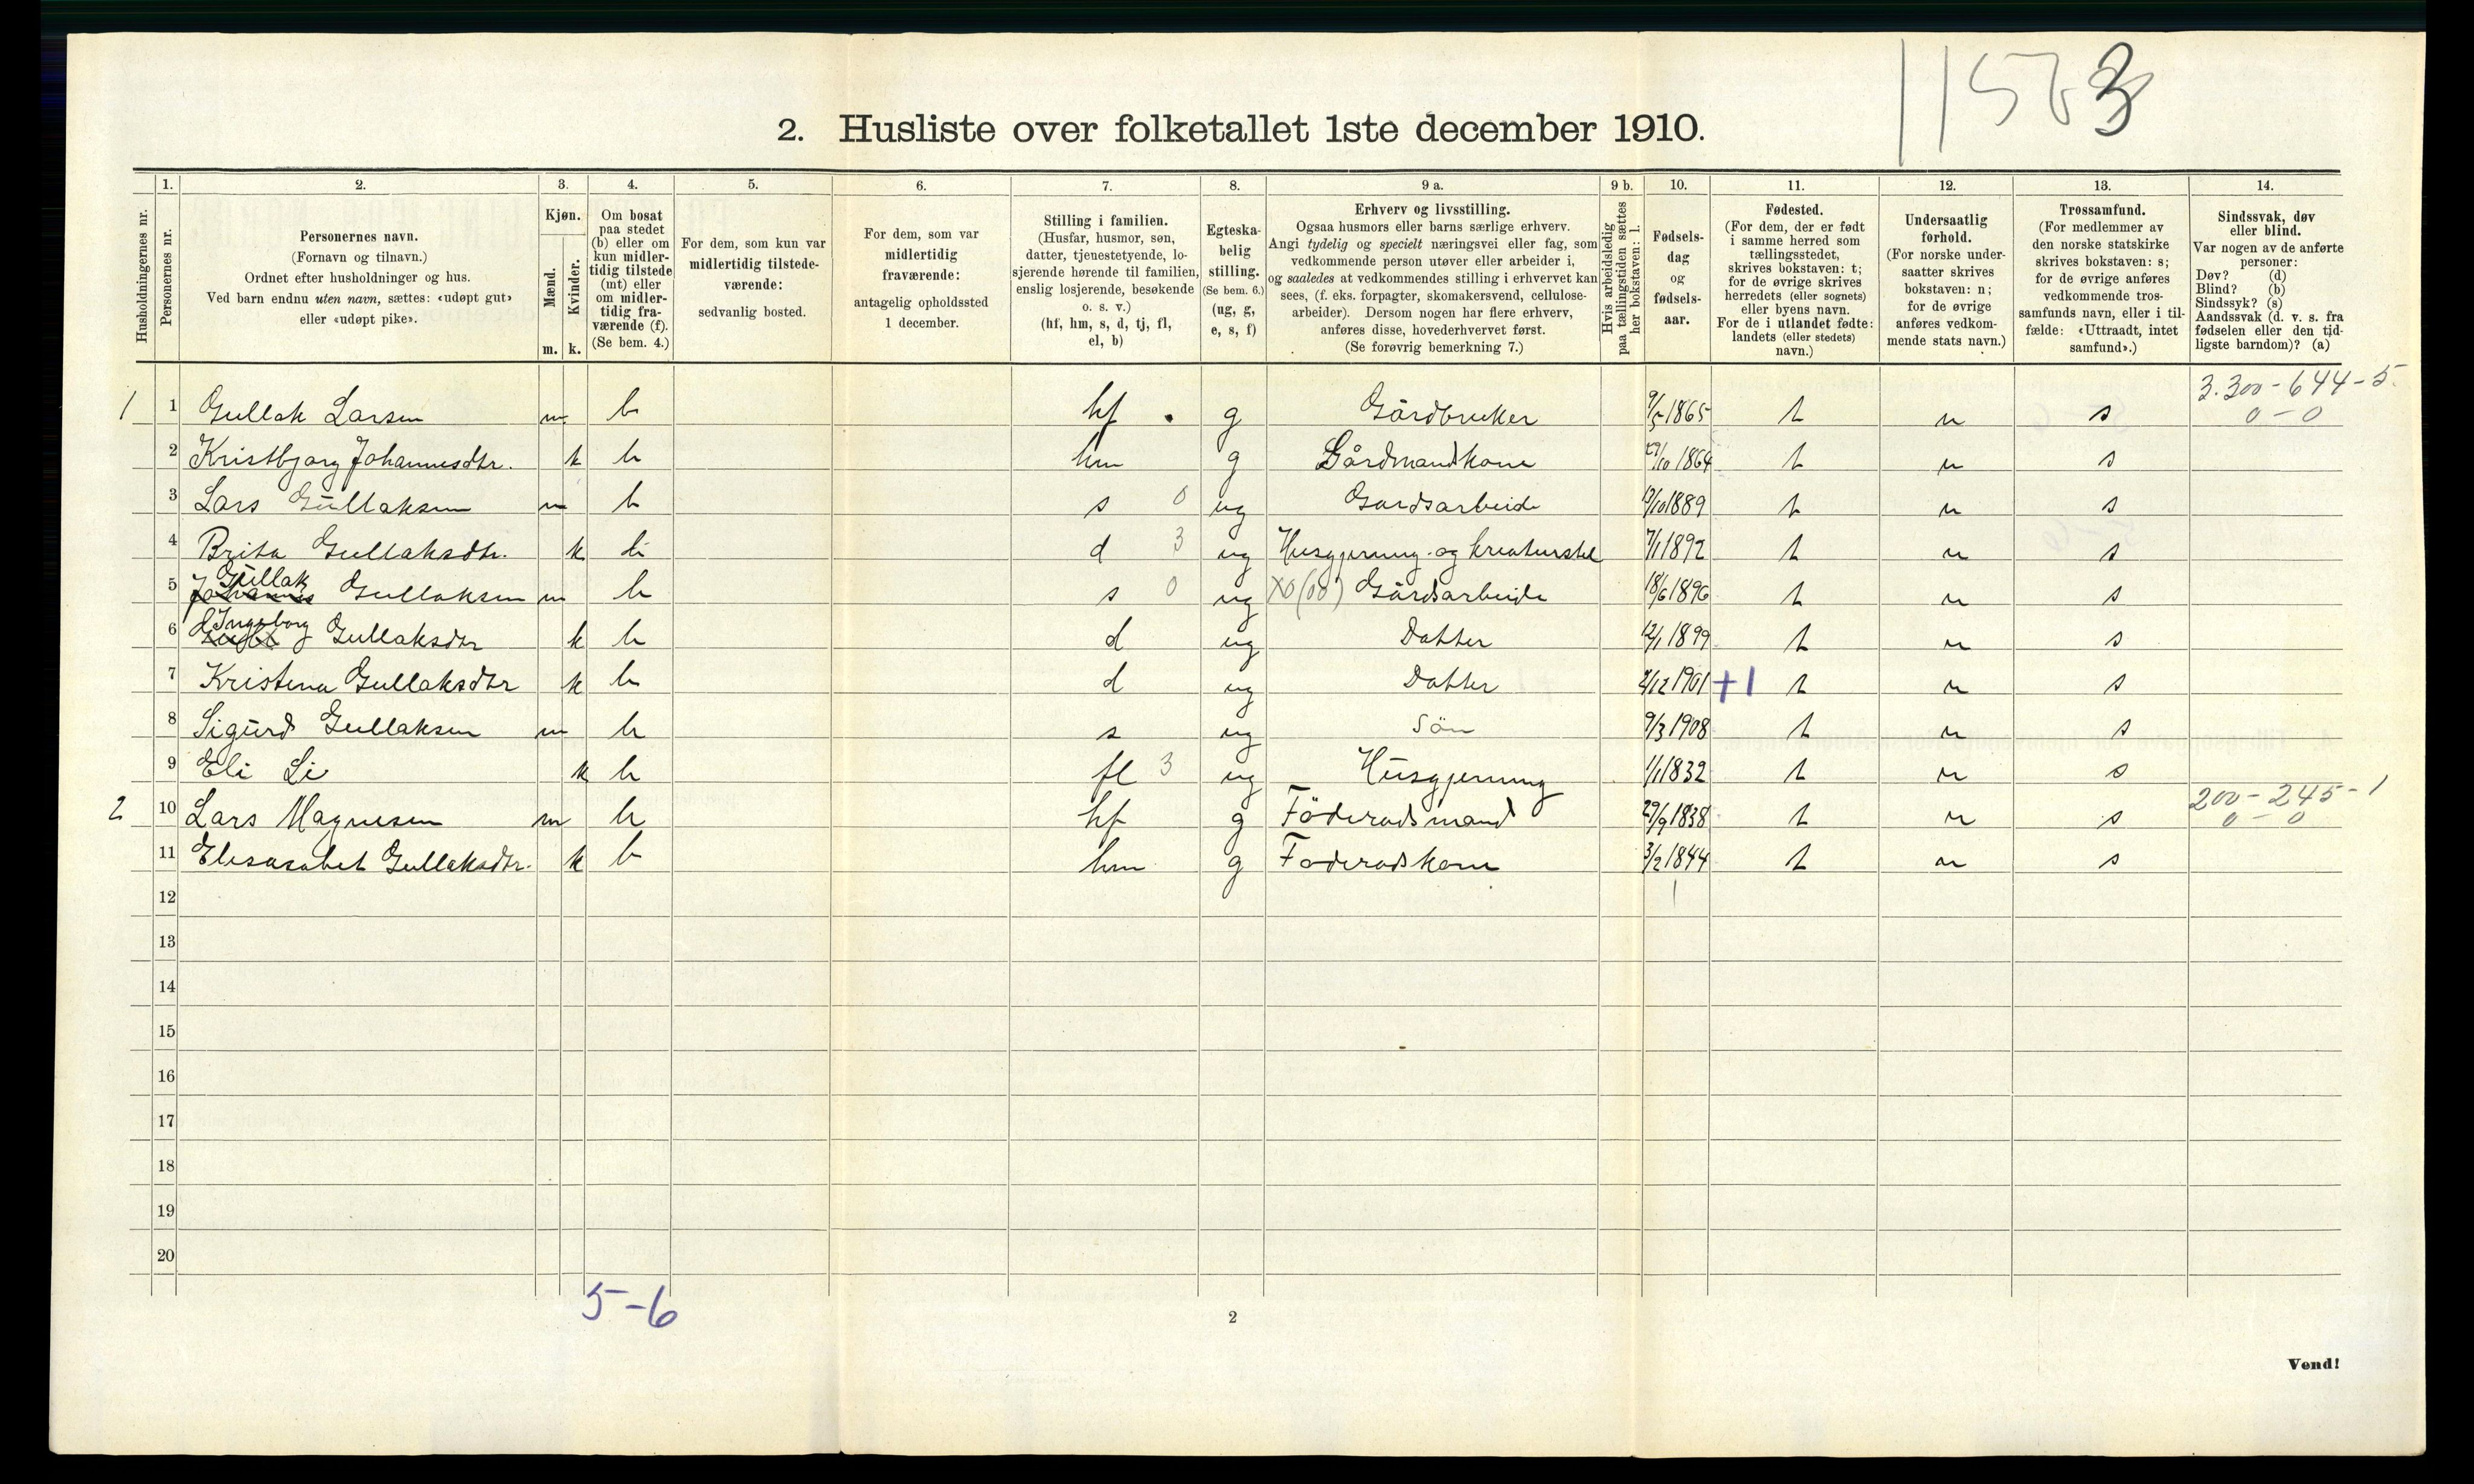 11563
2. Husliste over folketallet 1ste december 1910.
Husholdningernes nr.
1. Personernes nr.
2. Personernes navn. (Fornavn og tilnavn.) Ordnet efter husholdninger og hus. Ved barn endnu uten navn, sættes: «udøpt gut» eller «udøpt pike».
3. Kjøn. Mænd. m. Kvinder. k.
4. Om bosat paa stedet (b) eller om kun midlertidig tilstede (mt) eller om midlertidig fraværende (f). (Se bem. 4.)
5. For dem, som kun var midlertidig tilstedeværende: sedvanlig bosted.
6. For dem, som var midlertidig fraværende: antagelig opholdssted 1 december.
7. Stilling i familien. (Husfar, husmor, søn, datter, tjenestetyende, losjerende hørende til familien, enslig losjerende, besøkende o. s. v.) (hf, hm, s, d, tj, fl, el, b)
8. Egteskabelig stilling. (Se bem. 6.) (ug, g, e, s, f)
9 a. Erhverv og livsstilling. Ogsaa husmors eller barns særlige erhverv. Angi tydelig og specielt næringsvei eller fag, som vedkommende person utøver eller arbeider i, og saaledes at vedkommendes stilling i erhvervet kan sees, (f. eks. forpagter, skomakersvend, cellulosearbeider). Dersom nogen har flere erhverv, anføres disse, hovederhvervet først. (Se forøvrig bemerkning 7.)
9 b. Hvis arbeidsledig paa tællingstiden sættes her bokstaven: l.
10. Fødselsdag og fødselsaar.
11. Fødested. (For dem, der er født i samme herred som tællingsstedet, skrives bokstaven: t; for de øvrige skrives herredets (eller sognets) eller byens navn. For de i utlandet fødte: landets (eller stedets) navn.)
12. Undersaatlig forhold. (For norske undersaatter skrives bokstaven: n; for de øvrige anføres vedkommende stats navn.)
13. Trossamfund. (For medlemmer av den norske statskirke skrives bokstaven: s; for de øvrige anføres vedkommende trossamfunds navn, eller i tilfælde: «Uttraadt, intet samfund».)
14. Sindssvak, døv eller blind. Var nogen av de anførte personer: Døv? (d) Blind? (b) Sindssyk? (s) Aandssvak (d. v. s. fra fødselen eller den tidligste barndom)? (a)
1 1 Gullak Larsen m b hf . g Gårdbruker 9/5 1865 t n s 3.300-644-5 0-0
2 Kristbjorg Johannesdtr. k b hm g Gårdmandkone 29/10 1864 t n s
3 Lars Gullaksen m b s 0 ug Gardsarbeide 13/10 1889 t n s
4 Brita Gullaksdtr. k b d 3 ug Husgjerning og kreaturstel 7/1 1892 t n s
5 Johannes Gullak Gullaksen m b s 0 ug X0 (00) Gårdsarbeide 18/6 1896 t n s
6 Ingeborg Gullaksdtr k b d ug Datter 12/1 1899 t n s
7 Kristina Gullaksdtr k b d ug Datter 2/12 1901 +1 t n s
8 Sigurd Gullaksen m b s ug Sön 9/3 1908 t n s
9 Eli Li k b fl 3 ug Husgjerning 1/1 1832 t n s
2 10 Lars Magnesen m b hf g Föderådsmand 29/9 1838 t n s 200-245-1 0-0
11 Elesasabet Gullaksdtr. k b hm g Foderådskone 3/2 1844 t n s
12
13
14
15
16
17
18
19
20
5-6
2
Vend!